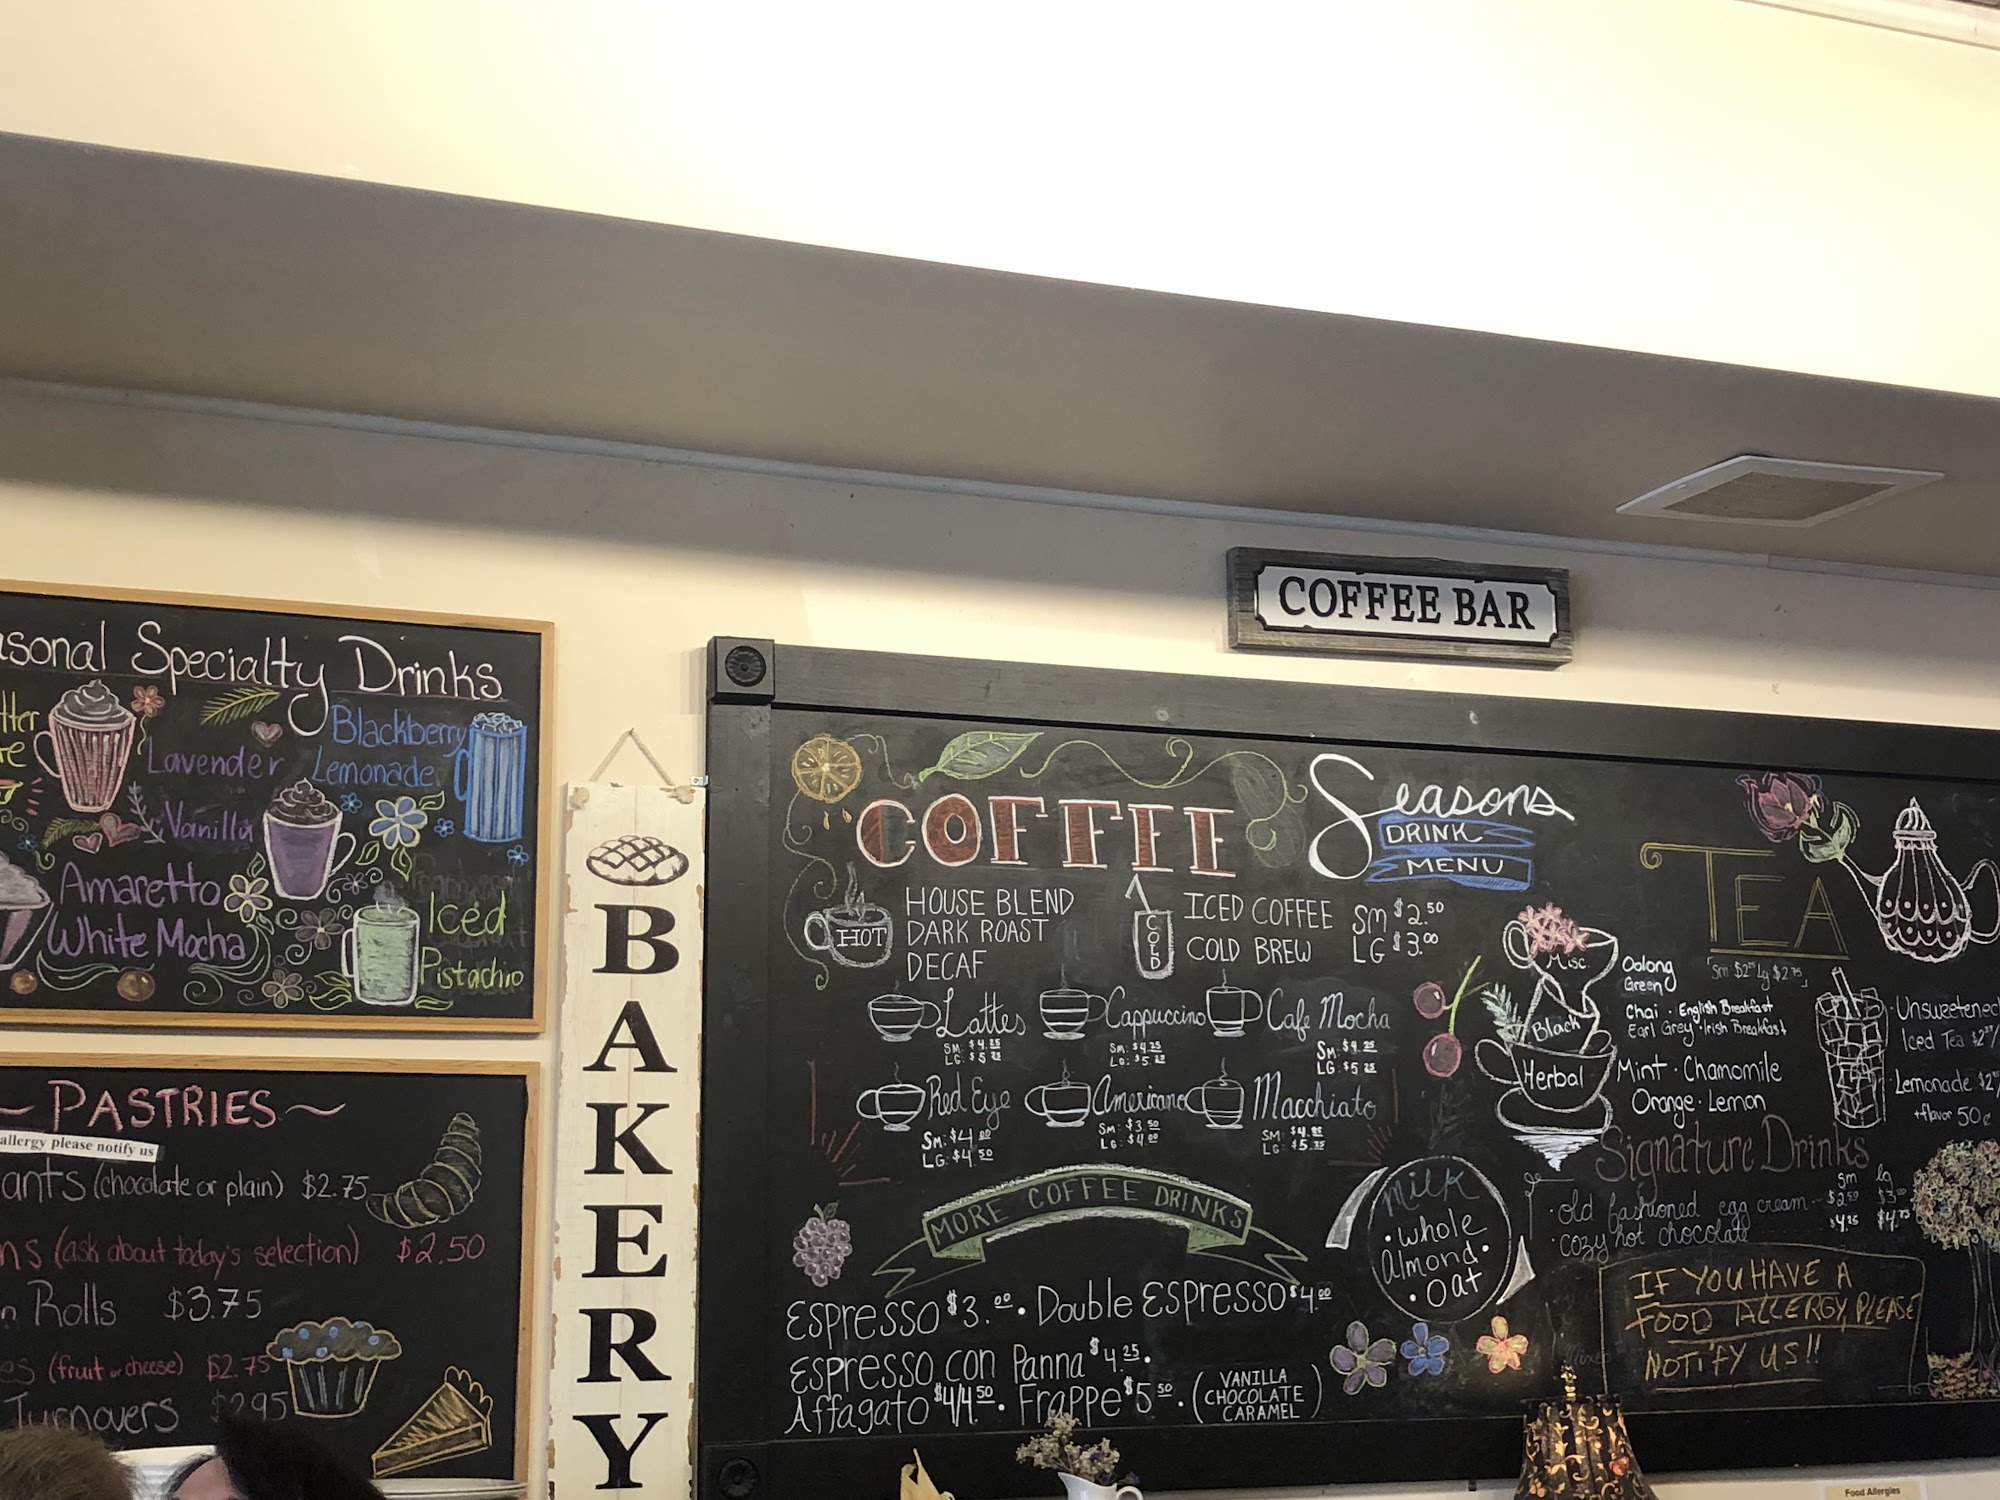 COFFEE BAR
asonal Specialty Drinks
Lavender
Vanilla
Blackberry
Lemonade
Amaretto
White Mocha
Iced
Pistachio
~ PASTRIES ~
allergy please notify us
ants (chocolate or plain) $2.75
ns (ask about today's selection) $2.50
n Rolls $3.75
es (fruit or cheese) $2.75
Turnovers $2.95
BAKERY
COFFEE
Seasons
DRINK
MENU
HOT
HOUSE BLEND
DARK ROAST
DECAF
COLD
ICED COFFEE
COLD BREW
SM $2.50
LG $3.00
Lattes
SM: $4.25
LG: $5.25
Cappuccino
SM: $4.25
LG: $5.25
Cafe Mocha
SM: $4.25
LG: $5.25
Red Eye
SM: $4.00
LG: $4.50
Americano
SM: $3.50
LG: $4.00
Macchiato
SM:
LG: $5.25
MORE COFFEE DRINKS
Espresso $3.00 • Double Espresso $4.00
Espresso con Panna $4.25 •
Affagato $4/4.50 • Frappe $5.50 • (VANILLA
CHOCOLATE
CARAMEL)
Milk
• Whole
Almond •
• Oat
TEA
Sm Lg $2.75
Misc.
Oolong
Green
Black
Chai • English Breakfast
Earl Grey • Irish Breakfast
Herbal
Mint • Chamomile
Orange • Lemon
• Unsweetened
Iced Tea
• Lemonade
+flavor 50¢
Signature Drinks
sm lg
• old fashioned egg cream
• cozy hot chocolate $4.25 $4.75
IF YOU HAVE A
FOOD ALLERGY, PLEASE
NOTIFY US!!
Food Allergies